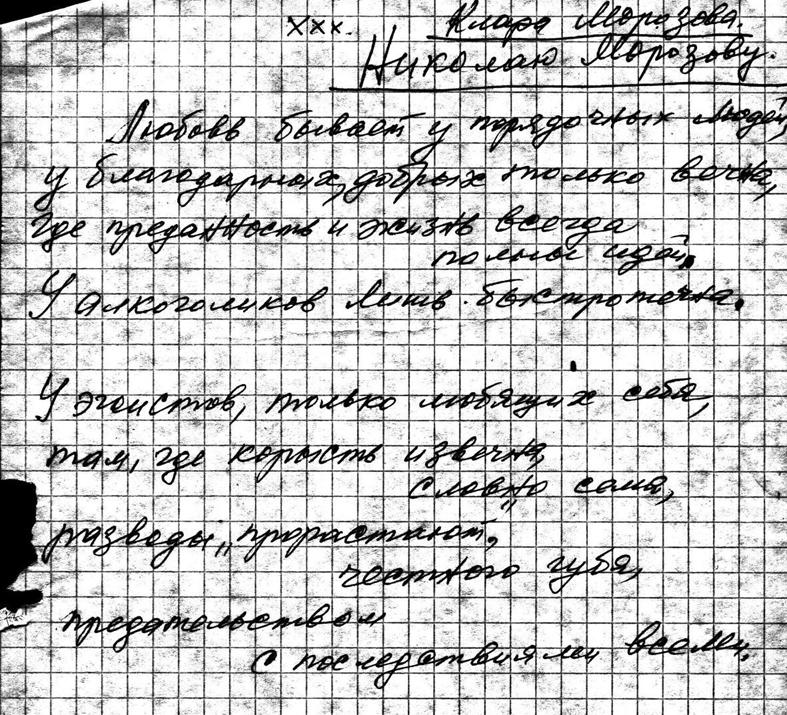 Клара Морозова.
ххх.
Николаю Морозову.
Любовь бывает у порядочных людей,
у благодарных, добрых только вечна,
где преданность и жизнь всегда
полны идей,
У алкоголиков лишь быстротечна.
У эгоистов, только любящих себя,
там, где корысть извечна,
словно сама,
разводы „прорастают",
честного губя,
предательством
с последствиями всеми.